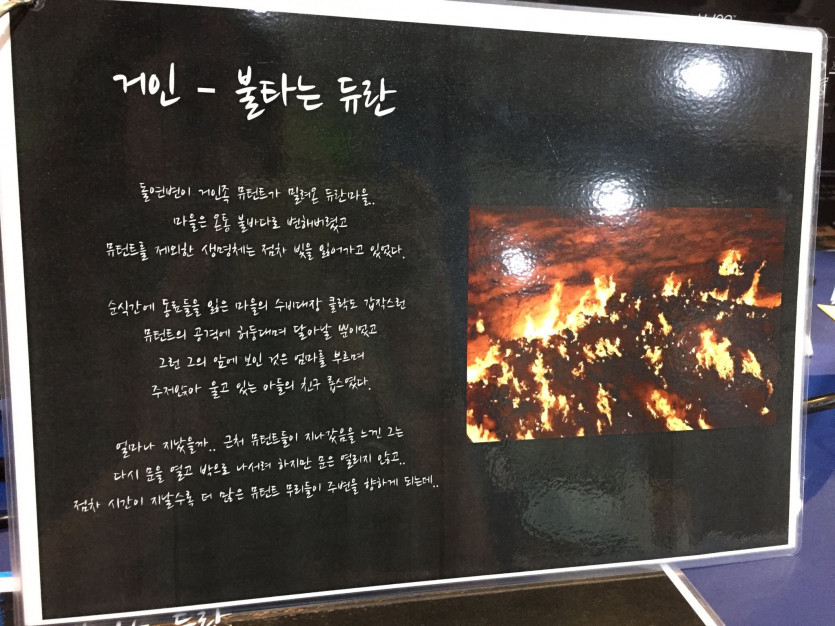 거인 - 불타는 듀란
돌연변이 거인족 뮤턴트가 밀려온 듀란마을..
마을은 온통 불바다로 변해버렸고
뮤턴트를 제외한 생명체는 점차 빛을 잃어가고 있었다.
순식간에 동료들을 잃은 마을의 수비대장 클락도 갑작스런
뮤턴트의 공격에 허둥대며 달아날 뿐이었고
그런 그의 앞에 보인 것은 엄마를 부르며
주저앉아 울고 있는 아들의 친구 롭스였다.
얼마나 지났을까.. 근처 뮤턴트들이 지나갔음을 느낀 그는
다시 문을 열고 밖으로 나서려 하지만 문은 열리지 않고..
점차 시간이 지날수록 더 많은 뮤턴트 무리들이 주변을 향하게 되는데..
듀란